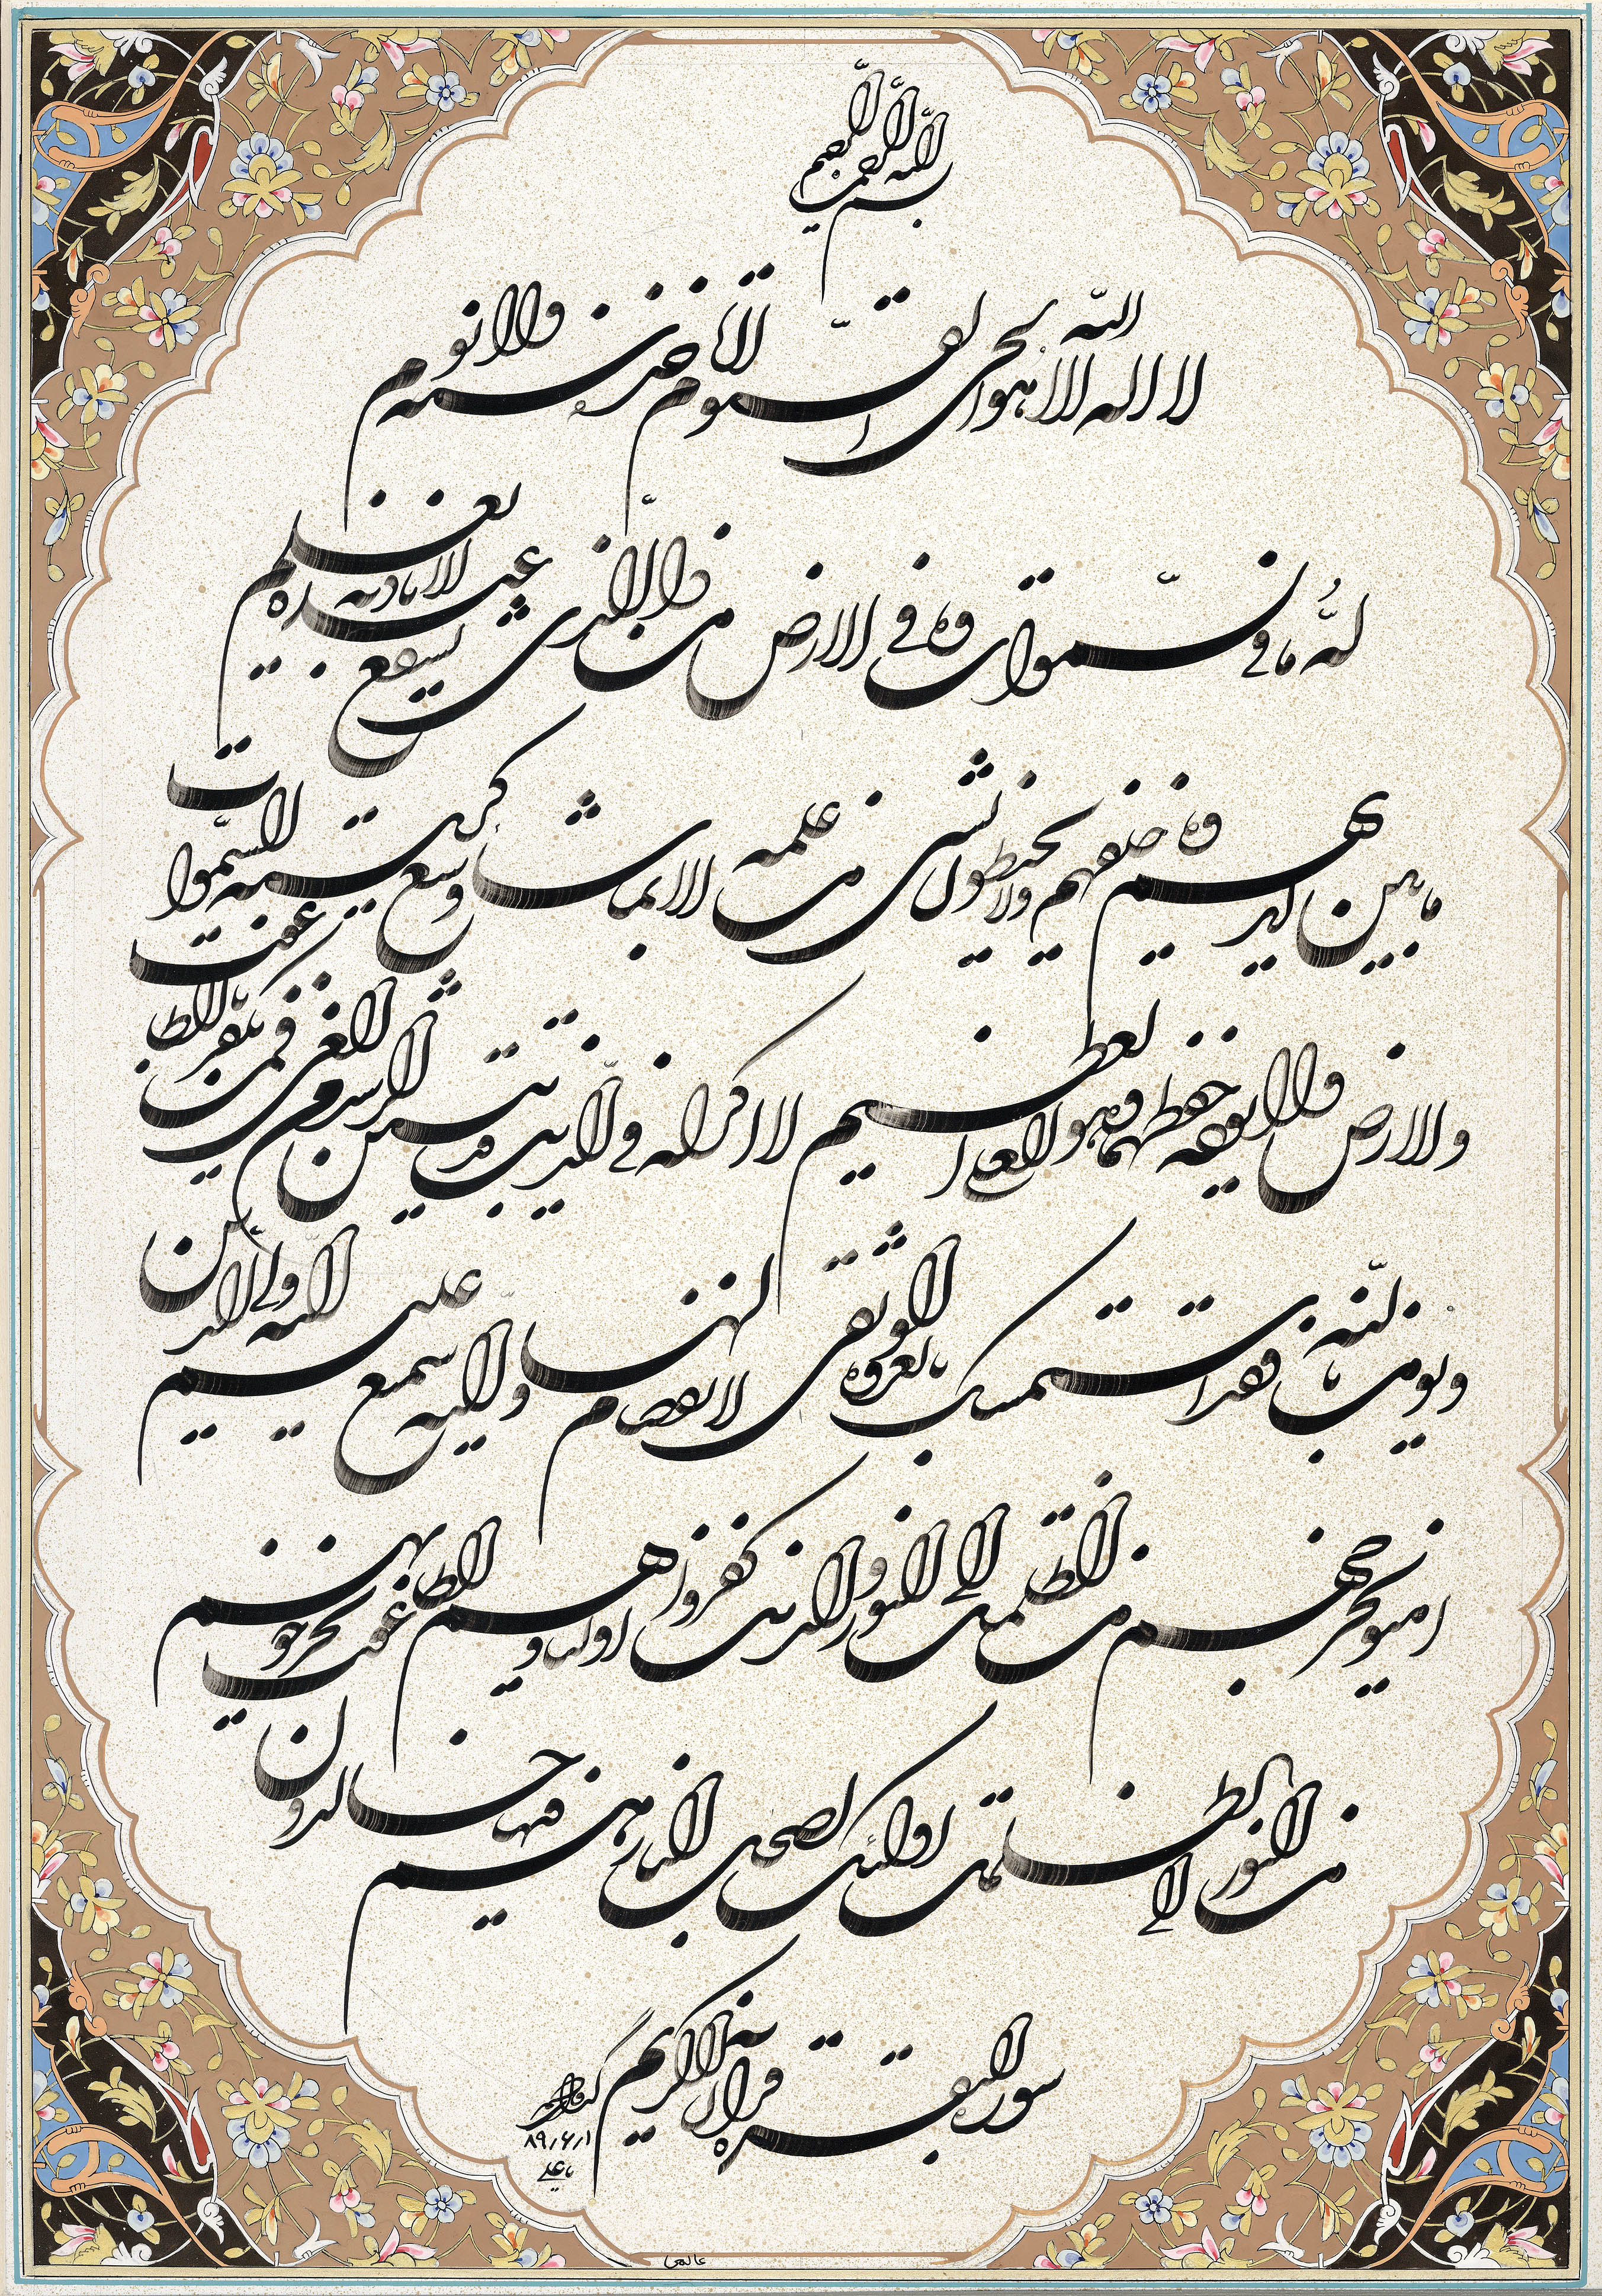 بسم الله الرحمن الرحیم
الله لا اله الا هو الحی القیوم لا تاخذه سنه ولا نوم
له ما فی السموات و ما فی الارض من ذا الذی یشفع عنده الا باذنه یعلم
ما بین ایدیهم و ما خلفهم ولا یحیطون بشی من علمه الا بما شا وسع کرسیه السموات
والارض ولا یوده حفظهما و هو العلی العظیم لا اکراه فی الدین قد تبین الرشد من الغی فمن یکفر بالطاغوت
و یومن بالله فقد استمسک بالعروه الوثقی لا انفصام لها والله سمیع علیم الله ولی الذین
امنوا یخرجهم من الظلمت الی النور والذین کفروا اولیاوهم الطاغوت یخرجونهم
من النور الی الظلمت اولئک اصحب النار هم فیها خالدون
سوره البقره قران الکریم
۸۹٫۶٫۱
یا علی